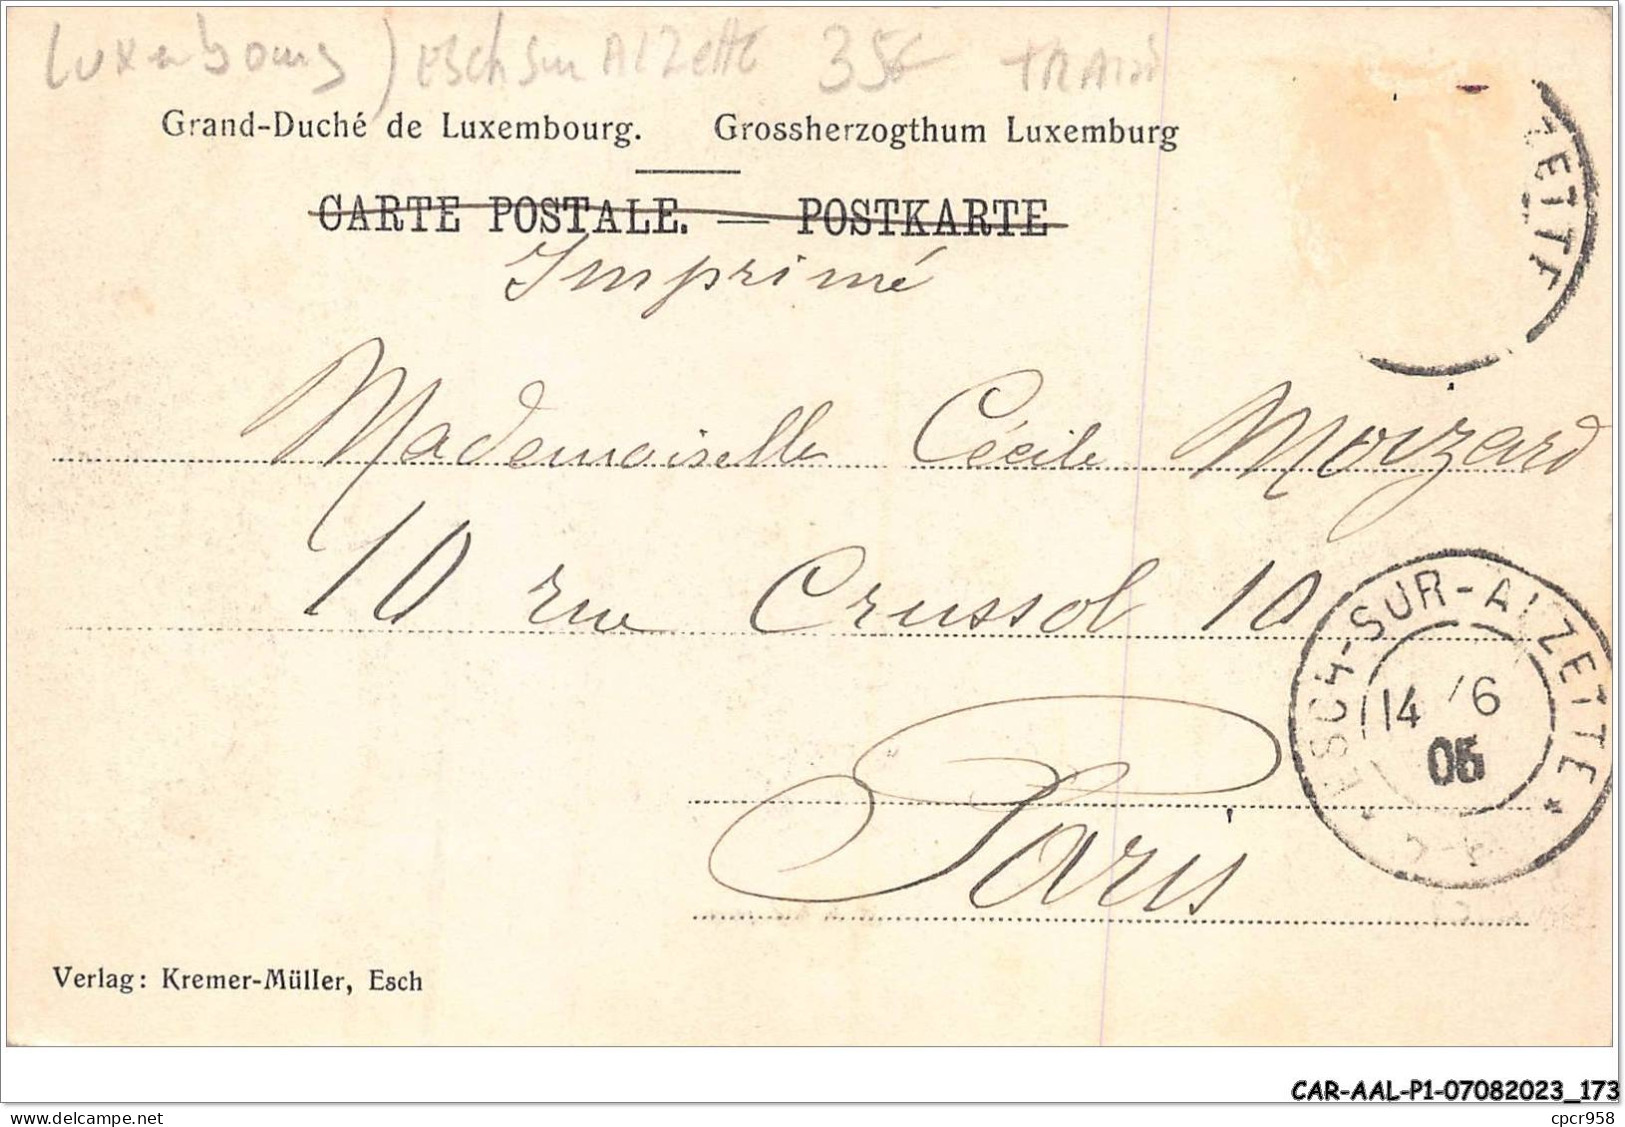 Luxembourg) Esch sur Alzette 35€ TRAIN
Grand-Duché de Luxembourg. Grossherzogthum Luxemburg
CARTE POSTALE. — POSTKARTE
Imprimé
ZETTE
Mademoiselle Cécile Moizard
10 rue Crussol 10
Paris
ESCH-SUR-ALZETTE
14 /6
05
Verlag: Kremer-Müller, Esch
CAR-AAL-P1-07082023_173
www.delcampe.net
cpcr958